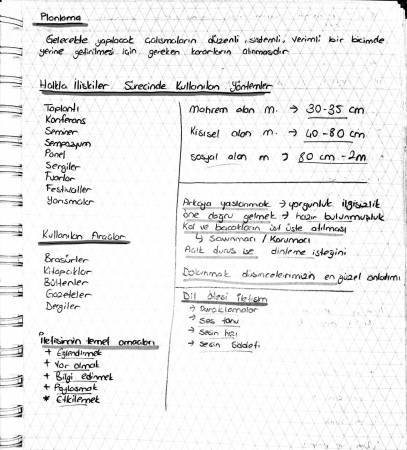 Planlama
Gelecekte yapılacak çalışmaların düzenli, sistemli, verimli bir biçimde
yerine getirilmesi için gereken kararların alınmasıdır
Halkla İlişkiler Sürecinde Kullanılan Yöntemler
Toplantı
Konferans
Seminer
Sempozyum
Panel
Sergiler
Fuarlar
Festivaller
Yarışmalar
Kullanılan Araçlar
Broşürler
Kitapçıklar
Bültenler
Gazeteler
Dergiler
İletişimin temel amaçları
+ Eğlendirmek
+ Var olmak
+ Bilgi edinmek
+ Paylaşmak
* Etkilemek
Mahrem alan m. → 30-35 cm
Kişisel alan m. → 40-80 cm
Sosyal alan m → 80 cm - 2m
Arkaya yaslanmak → yorgunluk ilgisizlik
öne doğru gelmek → hazır bulunmuşluk
Kol ve bacakların üst üste atılması
↳ Savunmacı / Korumacı
Açık duruş ise dinleme isteğini
Dokunmak düşüncelerimizin en güzel anlatımı
Dil ötesi iletişim
→ Duraklamalar
→ Ses tonu
→ Sesin hızı
→ Sesin şiddeti